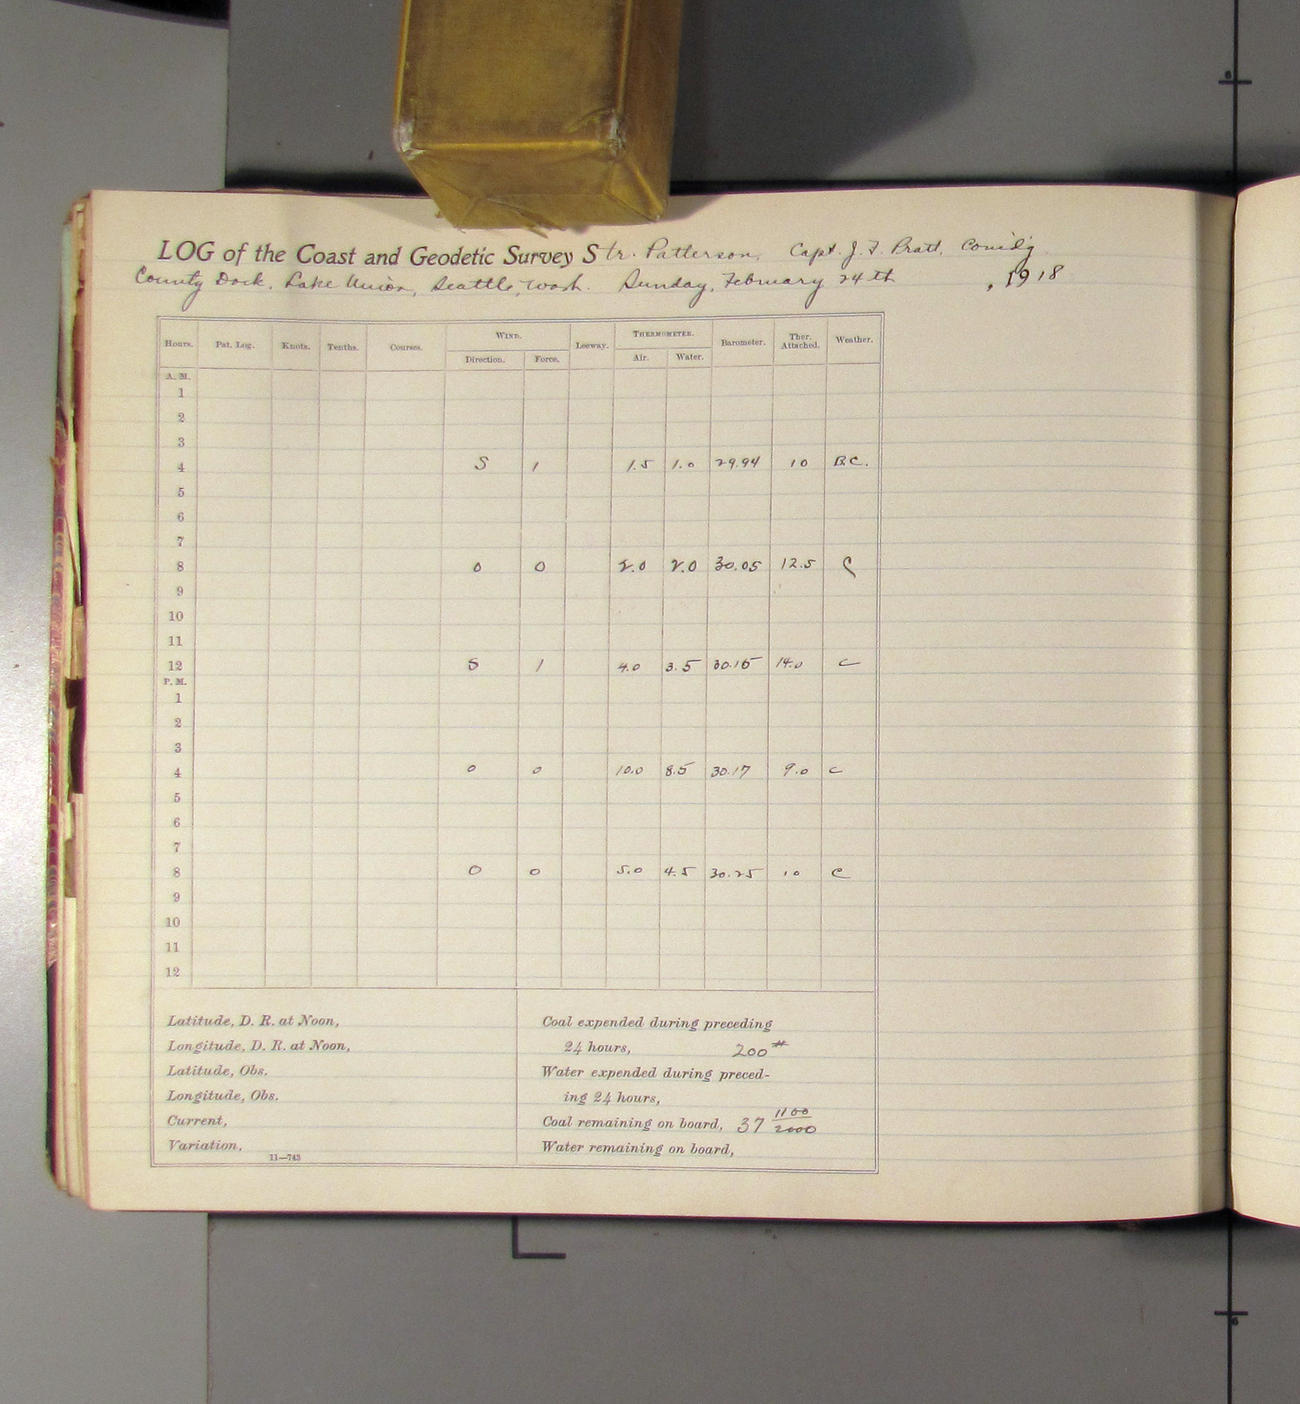 LOG of the Coast and Geodetic Survey Str. Patterson, Capt. J. F. Pratt, Comd'g
County Dock, Lake Union, Seattle, Wash. Sunday, February 24th, 1918
Hours. Pat. Log. Knots. Tenths. Courses. WIND. Leeway. THERMOMETER. Barometer. Ther. Attached. Weather.
Direction. Force. Air. Water.
A. M.
1
2
3
4 S 1 1.5 1.0 29.94 10 B.C.
5
6
7
8 0 0 2.0 2.0 30.05 12.5 C
9
10
11
12 S 1 4.0 3.5 30.15 14.0 C
P. M.
1
2
3
4 0 0 10.0 8.5 30.17 9.0 C
5
6
7
8 0 0 5.0 4.5 30.25 10 C
9
10
11
12
Latitude, D. R. at Noon,
Longitude, D. R. at Noon,
Latitude, Obs.
Longitude, Obs.
Current,
Variation,
11—743
Coal expended during preceding
24 hours, 200#
Water expended during preced-
ing 24 hours,
Coal remaining on board, 37 1100/2000
Water remaining on board,
6
6